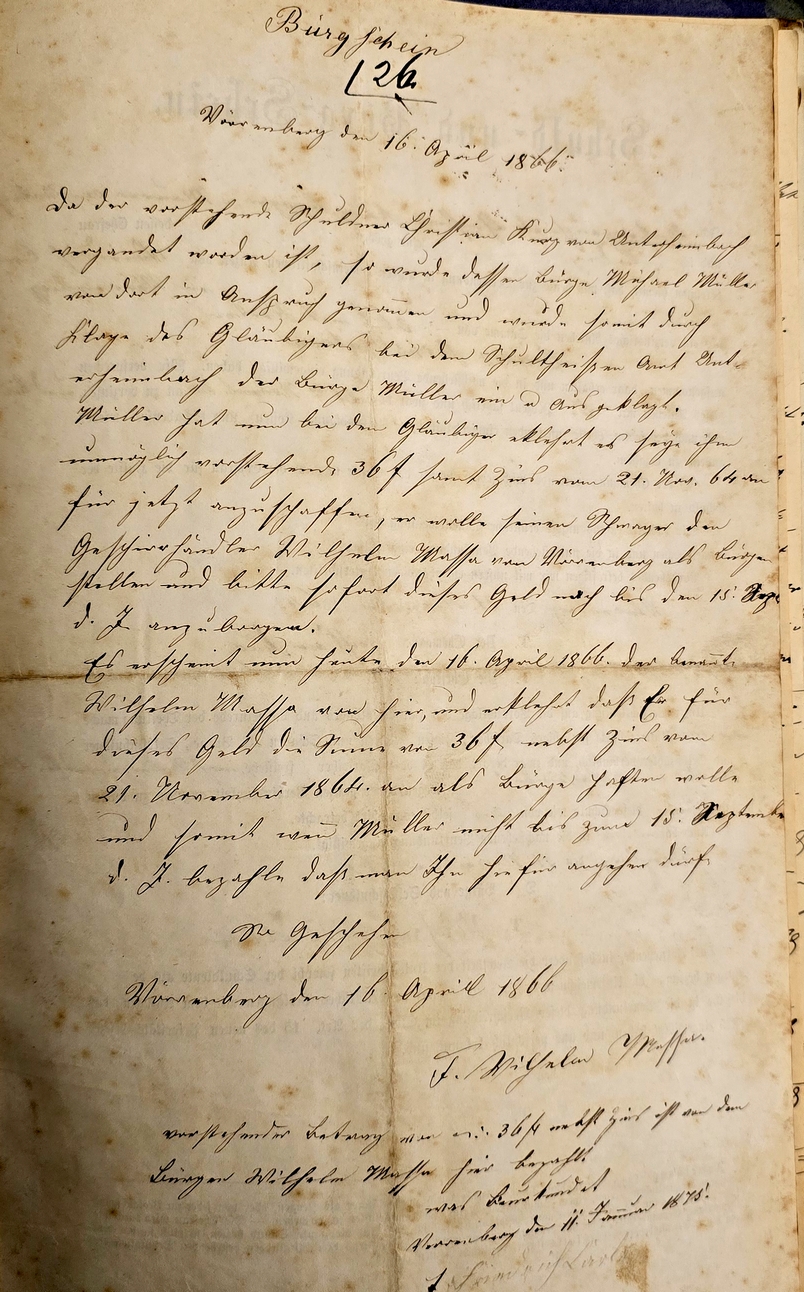 Bürgschein
126.
Vorrenberg den 16. April 1866.
Da der vorstehende Schuldner Christian Kurz von Unterheimbach
vergandet worden ist, so wurde dessen Bürge Michael Müller
von dort in Anspruch genommen und wurde somit durch
Klage des Gläubigers bei dem Schultheißen Amt Unt-
erheimbach der Bürge Müller ein u ausgeklagt.
Müller hat nun bei den Gläubiger erklehrt es seye ihm
unmöglich vorstehende 36 f samt Zins vom 21. Nov. 64 an
für jetzt anzuschaffen, er wolle seinen Schwager den
Geschirrhändler Wilhelm Massa von Vorrenberg als Bürgen
stellen und bitte sofort dieses Geld noch bis den 15. Sept
d. J. anzuborgen.
Es erscheint nun heute den 16. April 1866. der benannte
Wilhelm Massa von hier, und erklehrt daß Er für
dieses Geld die Sume von 36 f nebst Zins vom
21. November 1864. an als Bürge haften wolle
und somit wen Müller nicht bis zum 15. September
d. J. bezahle daß man Ihn hiefür angehen dürfe
So Geschehen
Vorrenberg den 16 Aprill 1866
T. Wilhelm Massa.
vorstehender Betrag von 36 f nebst Zins ist von dem
Bürgen Wilhelm Massa hier bezahlt
was beurkundet
Vorrenberg den 11. Januar 1875.
Friedrich